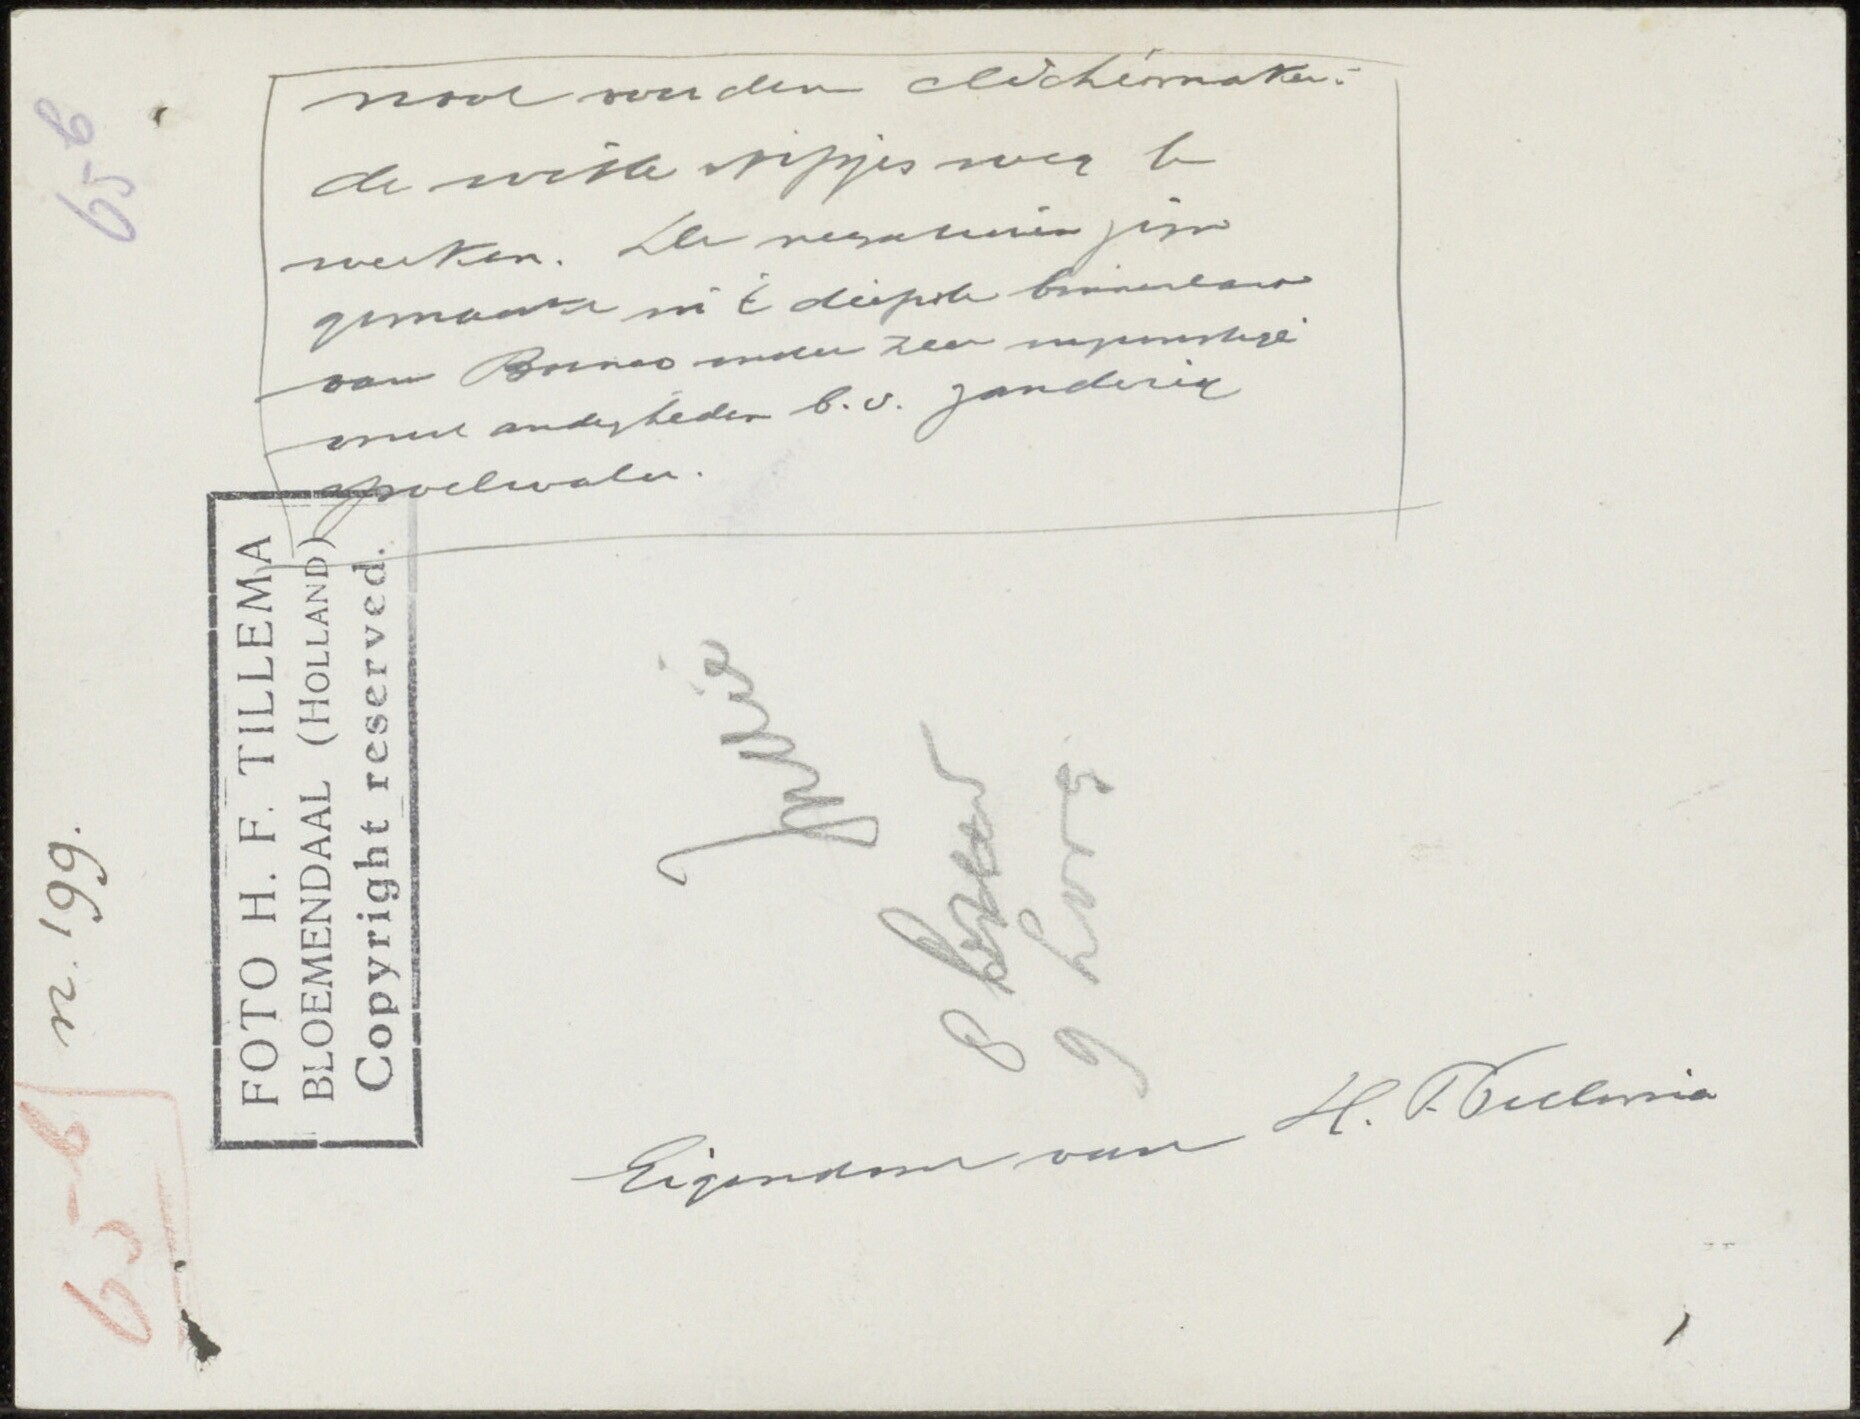 noot voor den clichémaker:
de witte stipjes weg te
werken. De negatieven zijn
gemaakt in 't diepste binnenland
van Borneo onder zeer ongunstige
omstandigheden b.v. zanderig
spoelwater.
65 b
FOTO H. F. TILLEMA
BLOEMENDAAL (HOLLAND)
Copyright reserved.
n. 199.
65-b
8
9 hoog
Eigendom van H. F. Tillema